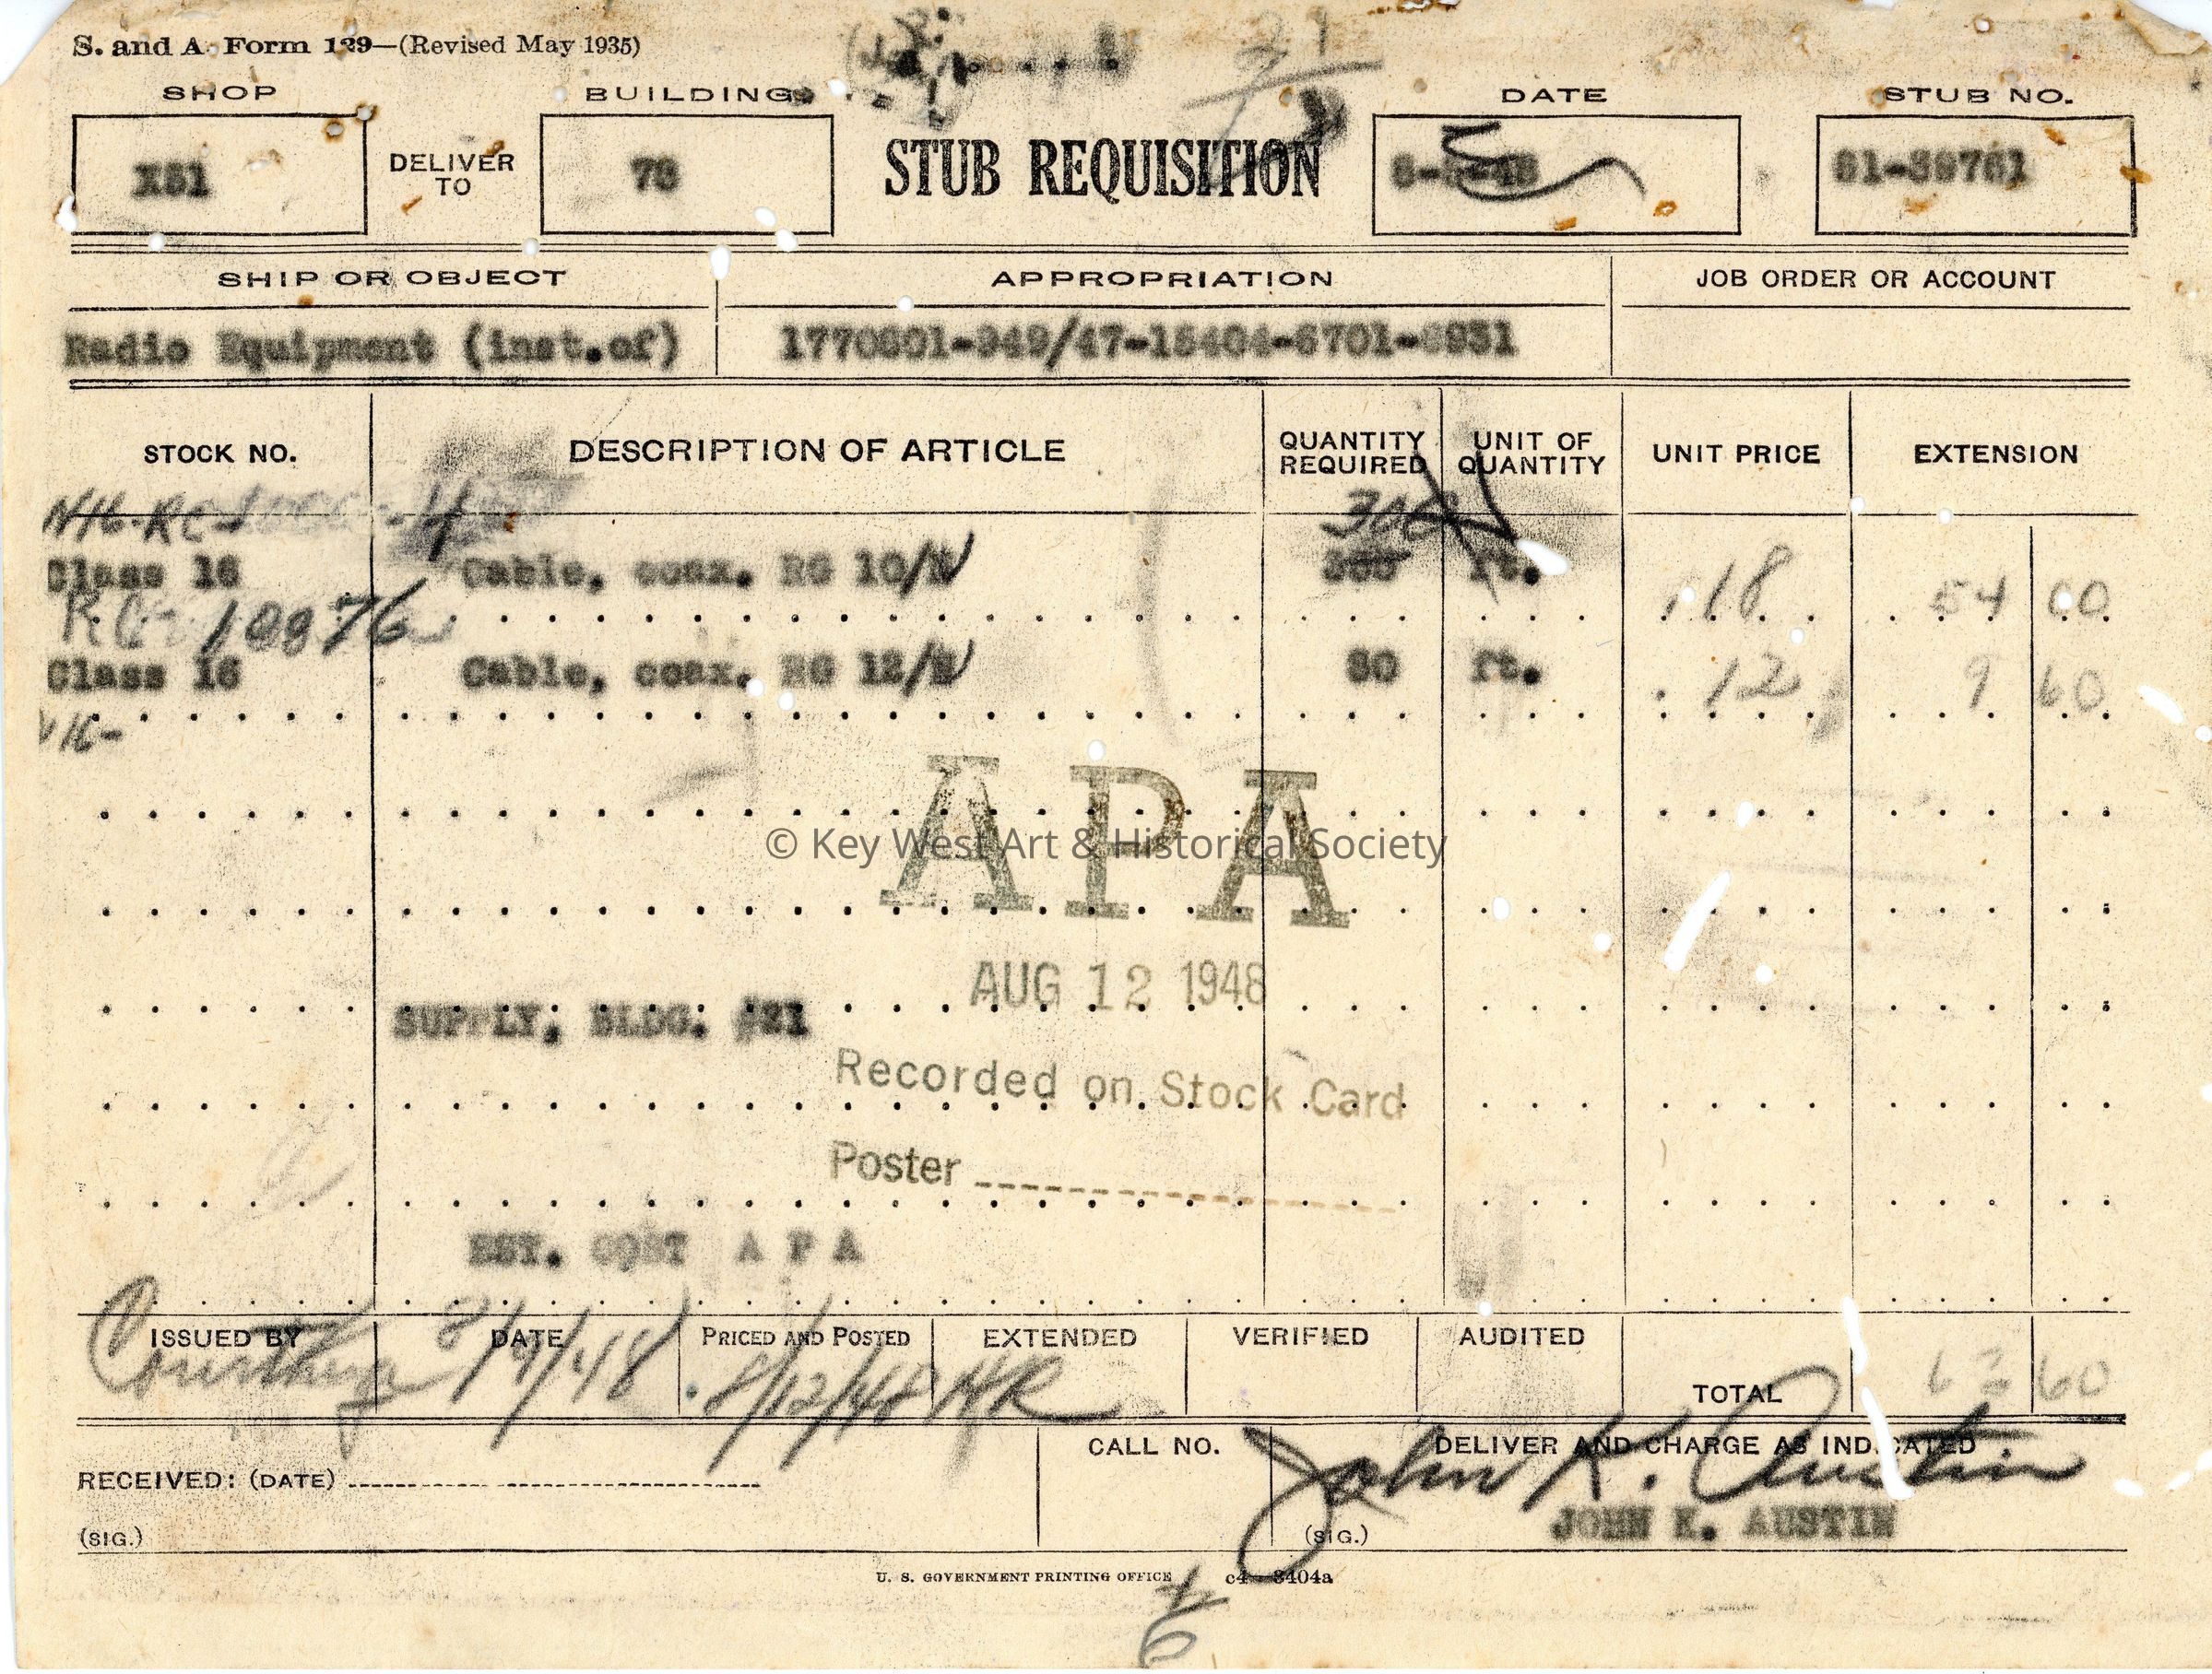 S. and A. Form 129—(Revised May 1935)
SHOP
BUILDING
DATE
STUB NO.
X51
DELIVER TO
STUB REQUISITION
SHIP OR OBJECT
APPROPRIATION
JOB ORDER OR ACCOUNT
Radio Equipment (inst.of)
STOCK NO.
DESCRIPTION OF ARTICLE
QUANTITY REQUIRED
UNIT OF QUANTITY
UNIT PRICE
EXTENSION
Class 16 Cable, coax. RG 10/U ft. .18 54 00
Class 16 Cable, coax. RG 12/U 80 ft. .12 9 60
APA
© Key West Art & Historical Society
AUG 12 1948
SUPPLY, BLDG. #21
Recorded on Stock Card
Poster
EST. COST A P A
ISSUED BY
DATE
PRICED AND POSTED
EXTENDED
VERIFIED
AUDITED
8/9/48 8/12/48 HR
TOTAL 63 60
CALL NO.
DELIVER AND CHARGE AS INDICATED
RECEIVED: (DATE)
John K. Austin
JOHN K. AUSTIN
(SIG.)
(SIG.)
U. S. GOVERNMENT PRINTING OFFICE c4—3404a